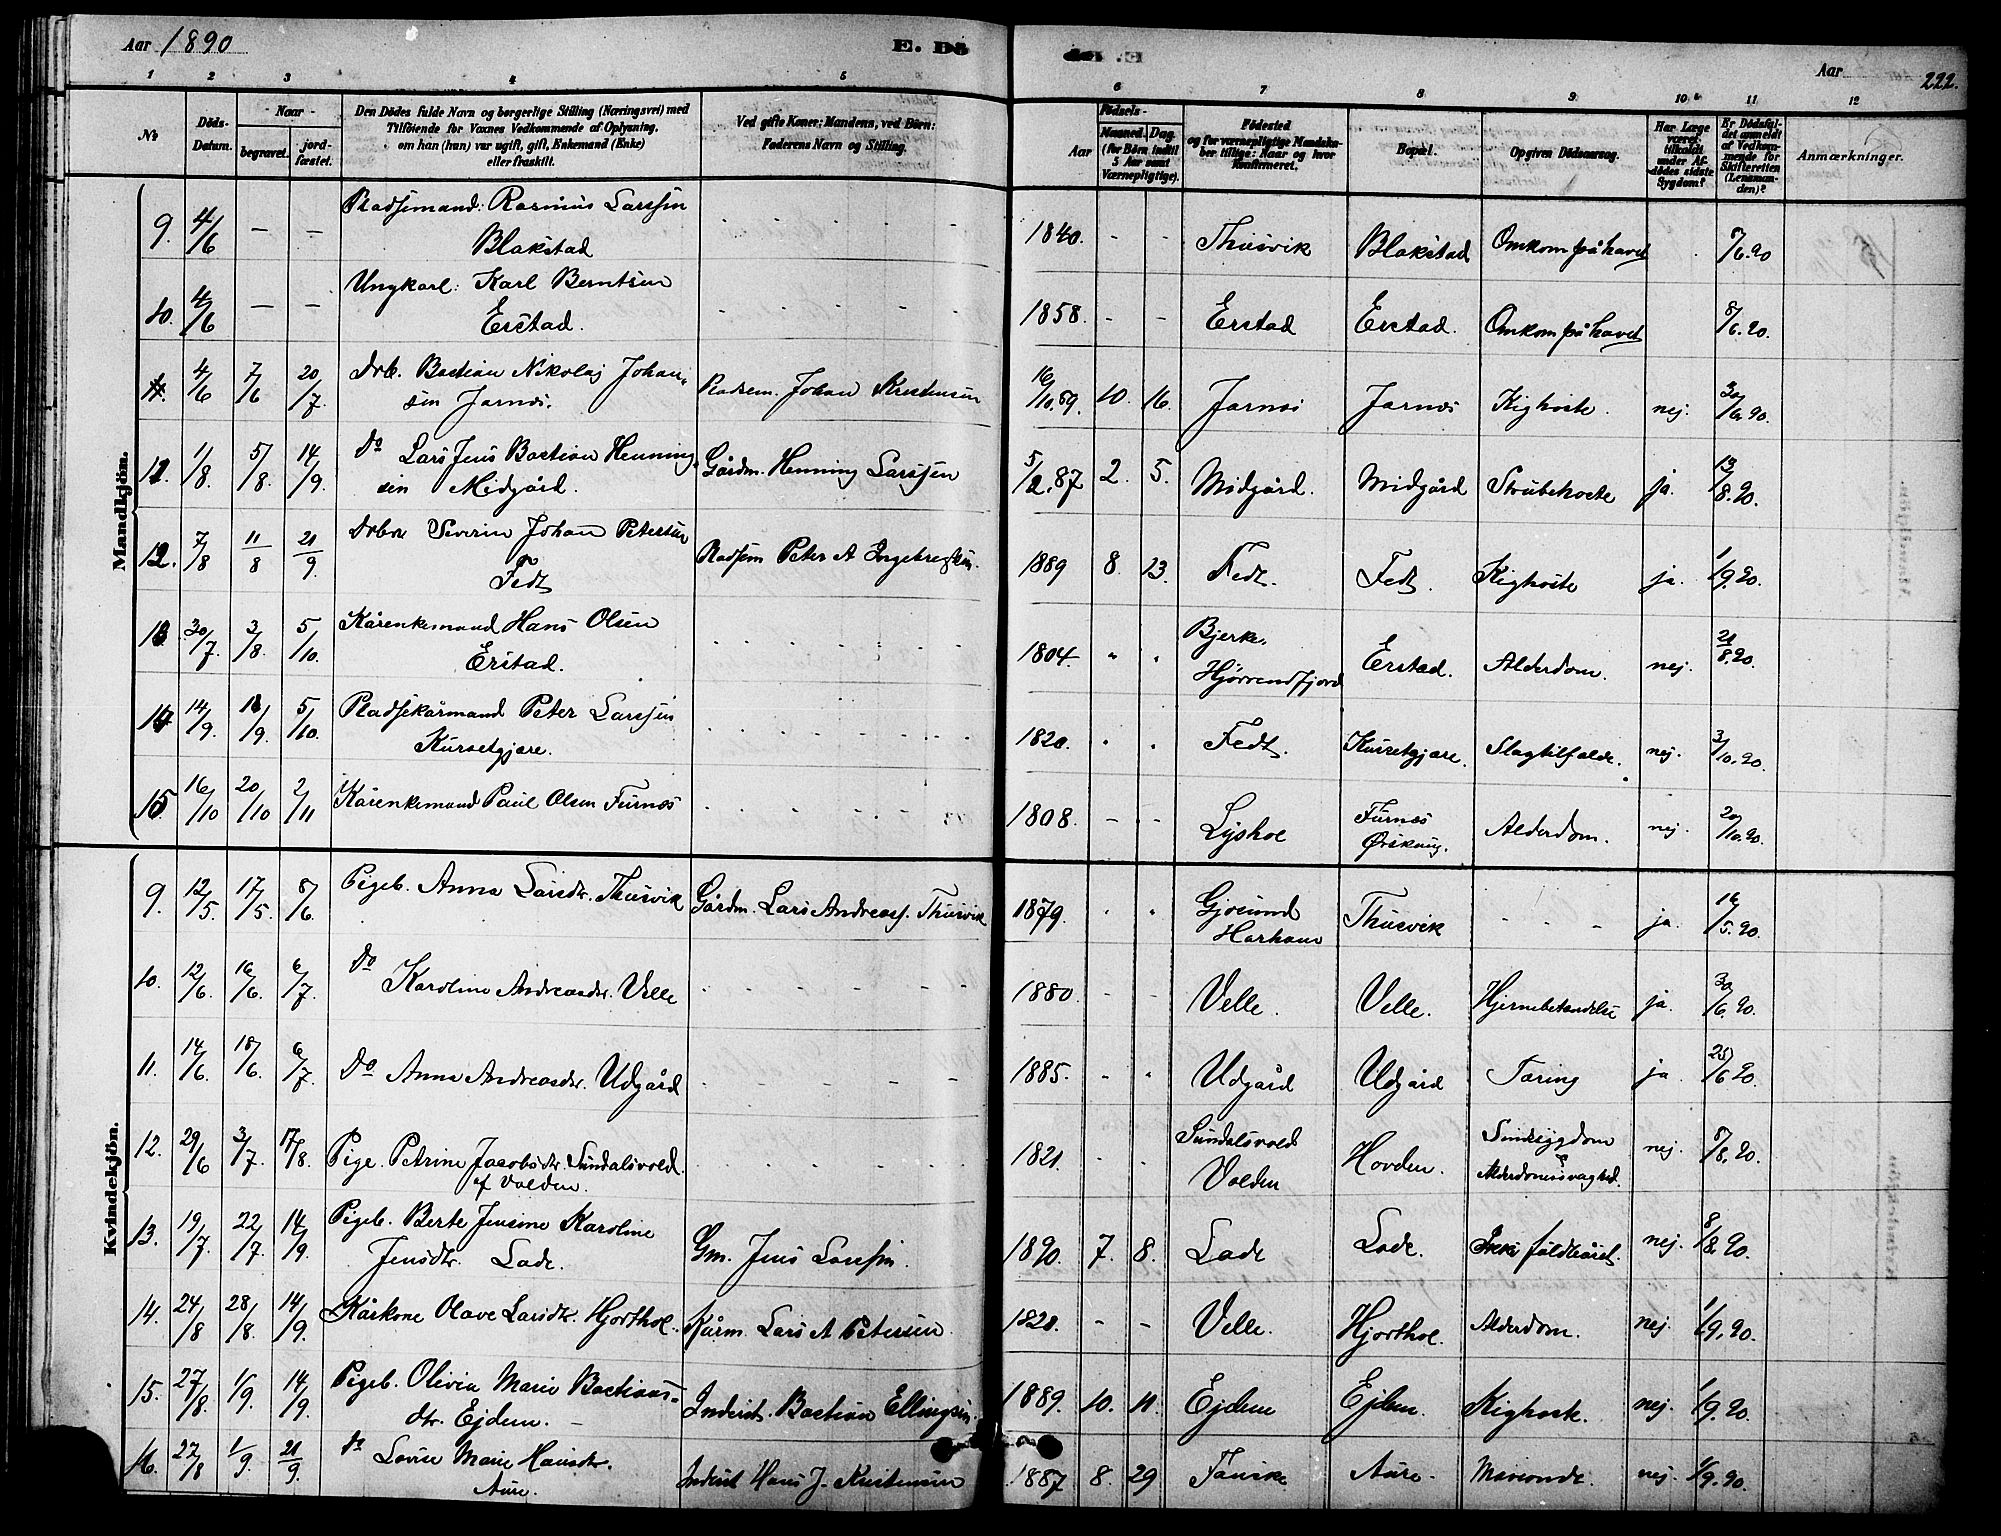 Aar 1890
E. Dö
Aar
222.
1 2 3 4 5 6 7 8 9. 10. 11 12
No
Döds-Datum.
Naar
begravet.
jord-fæstet.
Den Dödes fulde Navn og borgerlige Stilling (Næringsvei) med
Tilföiende for Voxnes Vedkommende af Oplysning,
om han (hun) var ugift, gift, Enkemand (Enke)
eller fraskilt.
Ved gifte Koner: Mandens, ved Börn:
Faderens Navn og Stilling.
Födsels-
Aar
Maaned. Dag.
(for Börn indtil
5 Aar samt
Værnepligtige).
Födested
og for værnepligtige Mandskaber
tillige: Naar og hvor
Konfirmeret.
Bopæl.
Opgiven Dödsaarsag.
Har Læge
været
tilkaldt
under Afdödes
sidste
Sygdom?
Er Dödsfaldet
anmeldt
af Vedkommende
for
Skifteretten
(Lensmanden)?
Anmærkninger.
Mandkjön.
9. 4/6 – – Pladsemand: Rasmus Larssen Blakstad 1840. - - Thusvik Blakstad Omkom på havet 7/6.90
10. 4/6 – – Ungkarl: Karl Berntsen Erstad. 1858. - - Erstad Erstad. Omkom på havet 8/6.90.
11. 4/6 7/6 20/7 Drb. Bastian Nikolaj Johansen Jarnes. Pladsem. Johan Kristensen 16/10.89. 10. 16. Jarnes Jarnes Kighoste. nej. 30/6.90.
11. 1/8. 5/8. 14/9. Do Lars Jens Bastian Henningsen Midgård. Gårdm. Henning Larssen 5/2.87 2. 5. Midgård. Midgård Strubehoste ja. 13/8.90.
12. 7/8 11/8 21/9. Drbn Severin Johan Petersen Fedt Pladsem Peter A Ingebregtsen. 1889 8. 23. Fedt. Fedt. Kighoste ja. 1/9.90.
13. 30/7. 3/8. 5/10. Kårenkemand Hans Olsen Erstad. 1804. Bjerke, Hjörrendfjord Erstad. Alderdom. nej. 21/8.90.
14. 14/9. 18/9. 5/10. Pladsekårmand Peter Larssen Kursetgjære. 1820. Fedt. Kursetgjære. Slagtilfælde. nej. 3/10.90.
15 16/10 20/10 2/11 Kårenkemand Paul Olsen Furnes 1808. - - Lyshol Furnes Ørskoug. Alderdom. nej. 20/10.90.
Kvindekjön.
9. 12/5 17/5. 8/6. Pigeb. Anna Larsdtr. Thusvik Gårdm. Lars Andreass. Thusvik 1879. Gjøsund Harham Thusvik - - - ja. 16/5.90.
10. 12/6. 16/6. 6/7. Do Karoline Andreasdtr. Velle 1880. - - Velle. Velle. Hjernebetændelse ja. 30/6.90.
11. 14/6. 18/6. 6/7. Do Anna Andreasdtr. Udgård 1885. Udgård Udgård Tæring ja. 25/6 90.
12. 29/6 3/7. 17/8. Pige. Petrine Jacobsdtr. Sundalsvold. af Volden. 1821. Sundalsvold Volden Hovden. Sindssygdom & Alderdomssvaghed. nej. 8/8.90.
13. 19/7. 22/7. 14/9. Pigeb. Berte Jensine Karoline Jensdtr. Lade. Gm. Jens Larssen. 1890. 7. 8. Lade Lade. Ikke fuldbåret. nej. 8/8.90.
14. 24/8 28/8. 14/9. Kårkone Olave Larsdtr. Hjorthol. Kårm. Lars A Petersen 1828. - - Velle. Hjorthol. Alderdom. nej. 1/9.90.
15. 27/8. 1/9. 14/9. Pigeb. Olivia Marie Bastiansdtr. Ejdem. Inderst. Bastian Ellingsen. 1889. 10. 11. Ejdem Ejdem. Kighoste. nej. 1/9.90.
16. 27/8 1/9. 21/9. Do Lovise Marie Hansdtr. Aure. Inderst Hans J. Kristensen 1887 8. 29 Aure. nej. 1/9.90.